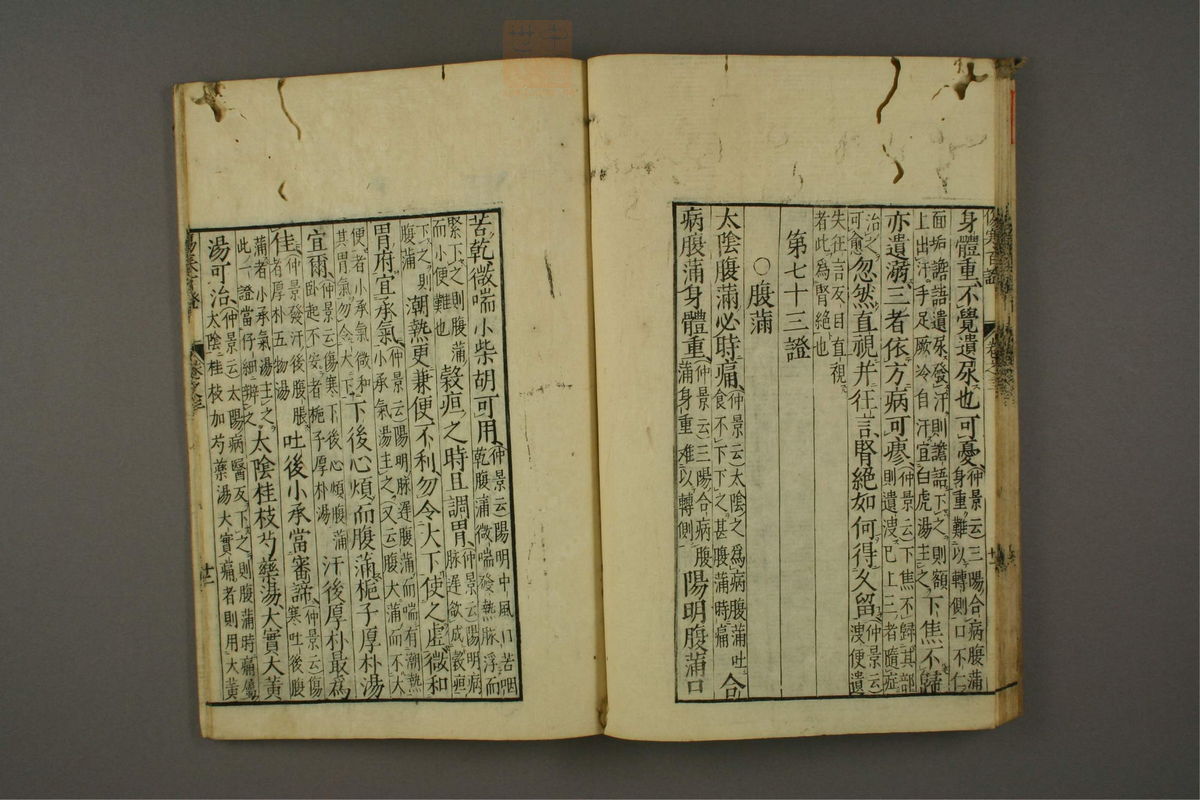 傷寒百證 卷之三
身體重不覺遺尿也可憂 仲景云三陽合病腹滿身重難以轉側口不仁
面垢譫語遺尿發汗則譫語下之則額上出汗手足厥冷自汗宜白虎湯主之 下焦不歸
亦遺溺三者依方病可瘳 仲景云下焦不歸其部則遺溲已上三者隨症
治之可愈 忽然直視并狂言腎絕如何得久留 仲景云溲便遺
失狂言反目直視者此為腎絕也
第七十三證
○腹滿
太陰腹滿必時痛 仲景云太陰之為病腹滿吐食不下下之甚腹滿時痛 合
病腹滿身體重 仲景云三陽合病腹滿身重難以轉側 陽明腹滿口
苦乾微喘小柴胡可用 仲景云陽明中風口苦咽乾腹滿微喘發熱脉浮而
緊下之則腹滿而小便難也 穀疸之時且調胃 仲景云陽明病脉遲欲成穀疸
下之則腹滿 潮熱更兼便不利勿令大下使之虛微和
胃府宜承氣 仲景云陽明脉遲腹滿而喘有潮熱小承氣湯主之又云腹大滿而不大
便者小承氣微和其胃氣勿令大下 下後心煩而腹滿梔子厚朴湯
宜爾 仲景云傷寒下後心煩腹滿臥起不安者梔子厚朴湯 汗後厚朴最為
佳 仲景發汗後腹脹滿者厚朴五物湯 吐後小承當審諦 仲景云傷寒吐後腹
滿者小承氣湯主之此一證當仔細辨之 太陰桂枝芍藥湯大實大黃
湯可治 仲景云太陽病醫反下之則腹滿時痛屬太陰桂枝加芍藥湯大實痛者則用大黃